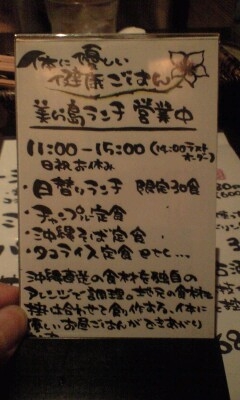 体に優しい
健康ごはん
美ら島ランチ 営業中
11:00-15:00 (14:00ラスト
オーダー)
日祝お休み
・日替りランチ 限定30食
・チャンプル定食
・沖縄そば定食
・タコライス定食 etc...
沖縄直送の食材を独自の
アレンジで調理。地元の食材も
組み合わせて創作する、体に
優しいお昼ごはんができあがり